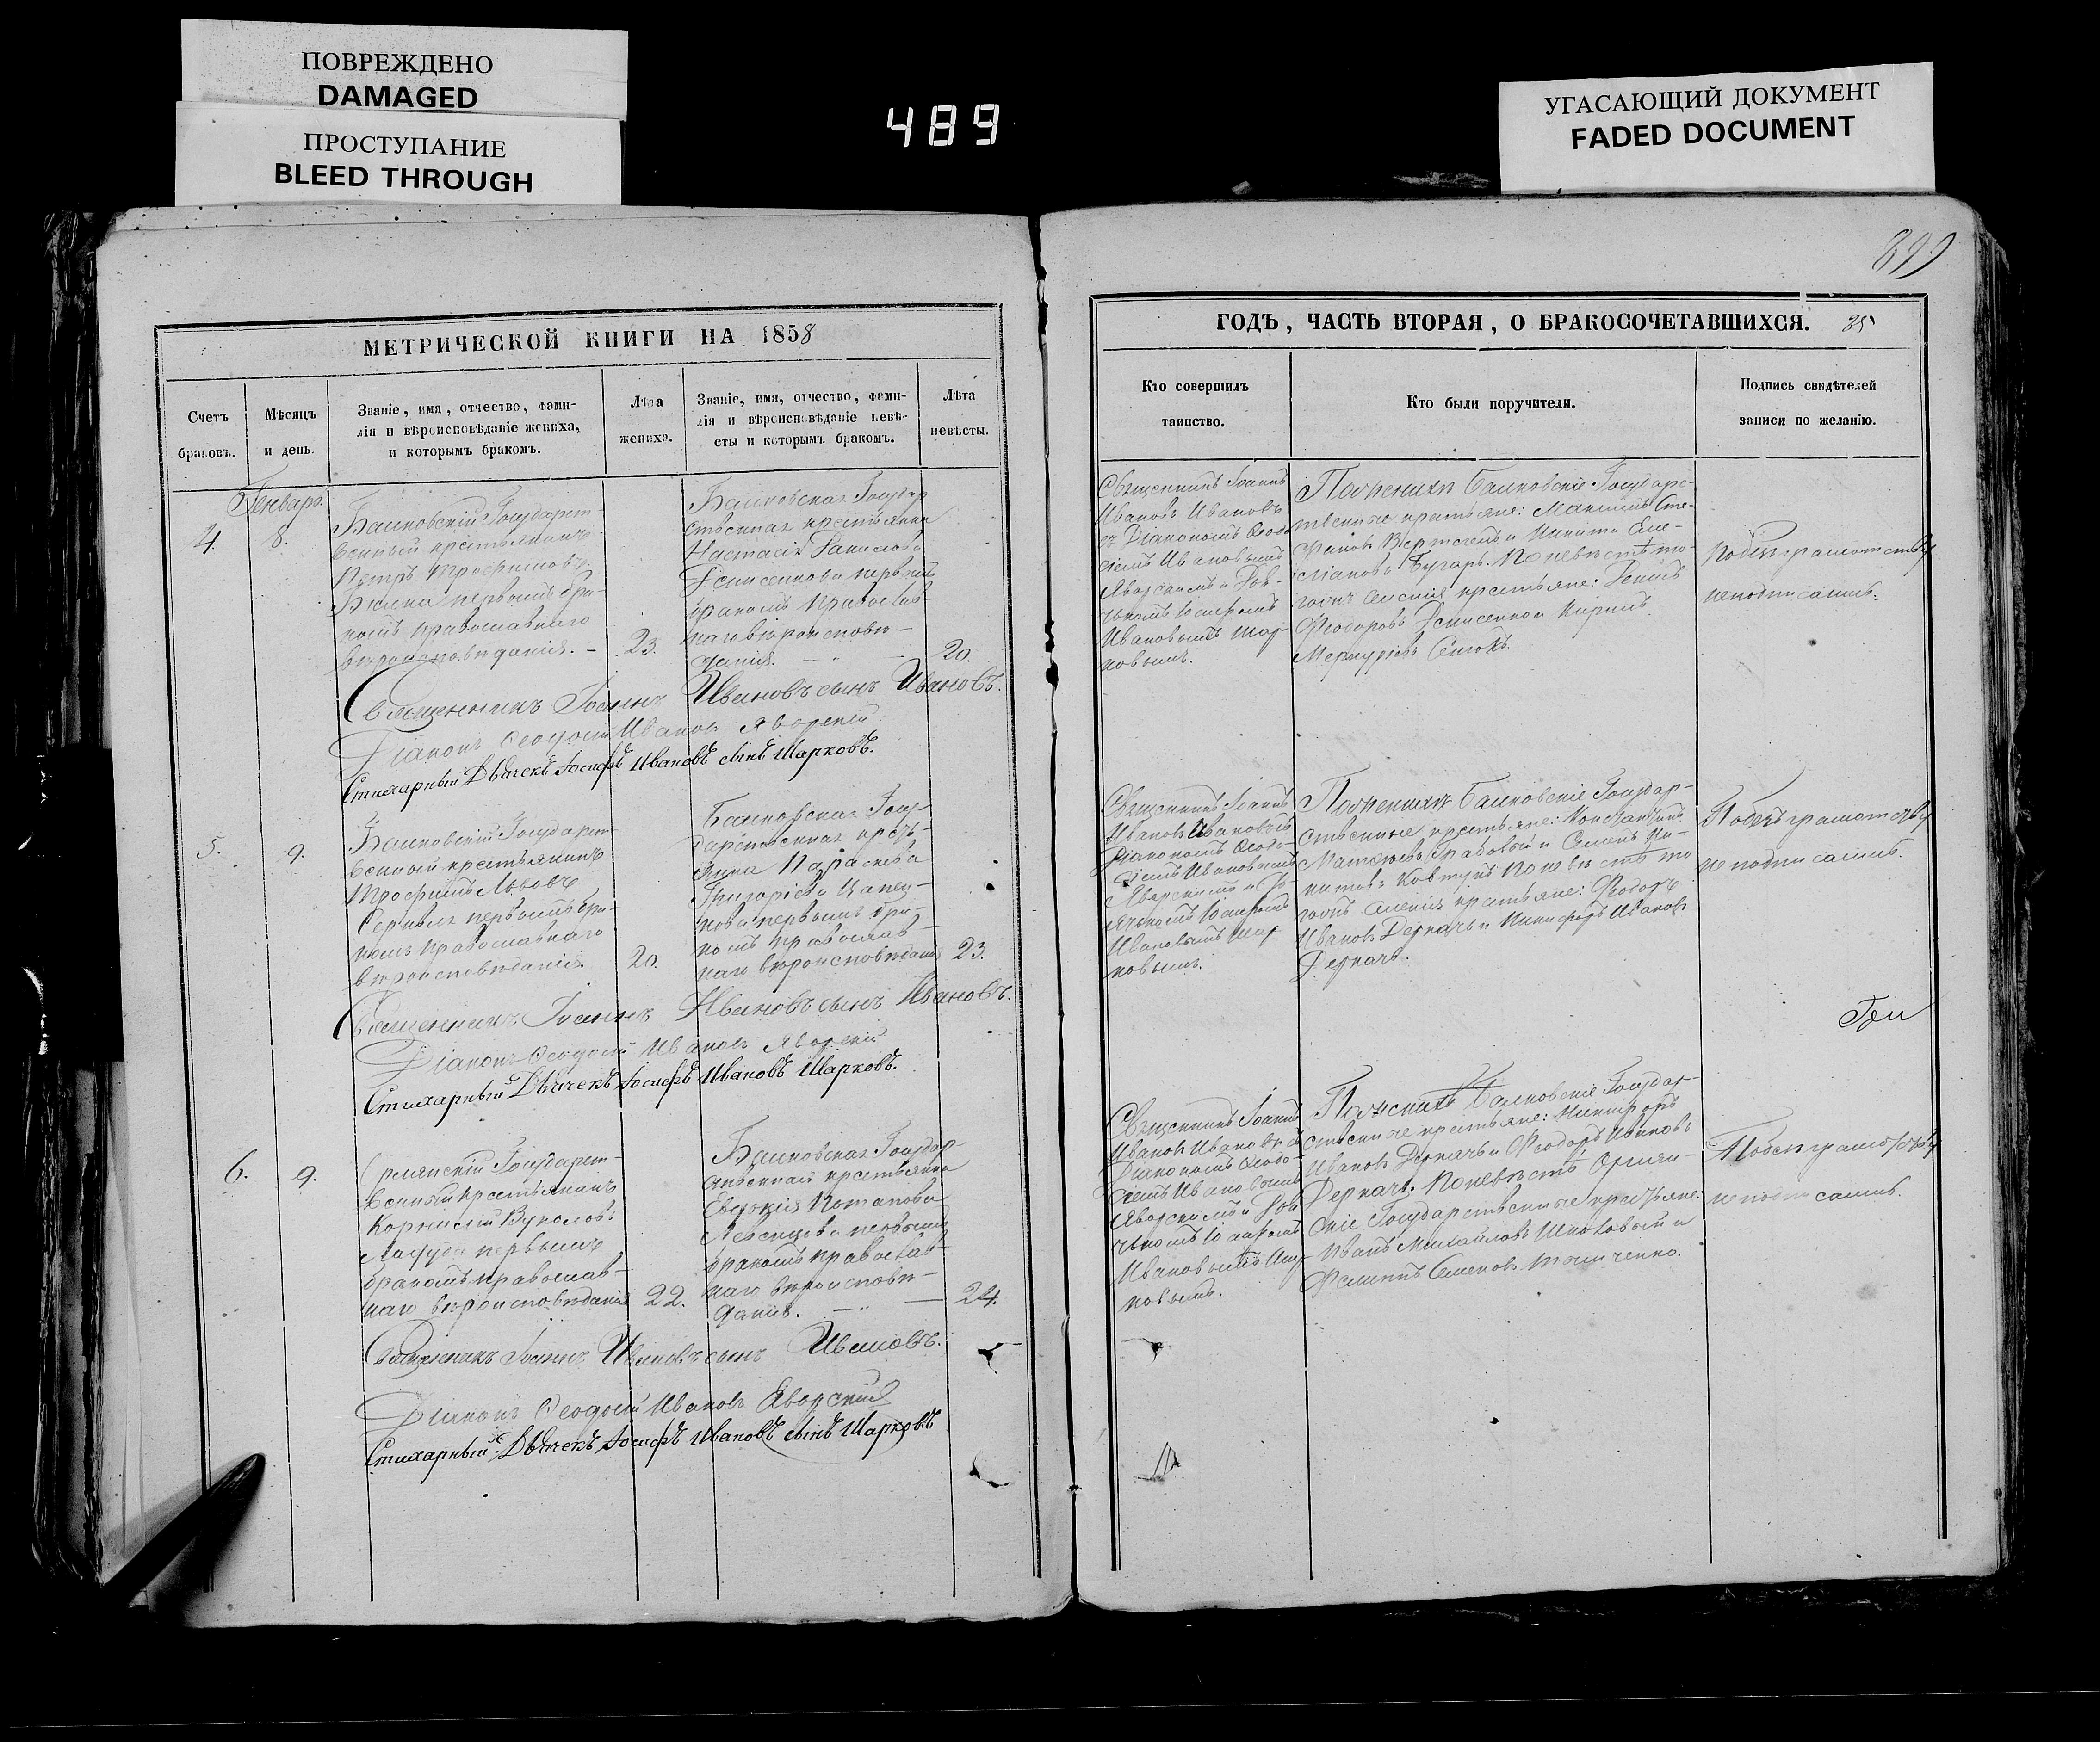 ПОВРЕЖДЕНО
DAMAGED
ПРОСТУПАНИЕ
BLEED THROUGH
489
УГАСАЮЩИЙ ДОКУМЕНТ
FADED DOCUMENT
899
МЕТРИЧЕСКОЙ КНИГИ НА 1858
Счетъ
браковъ.
Мѣсяцъ
и день.
Званіе, имя, отчество, фами-
лія и вѣроисповѣданіе жениха,
и которымъ бракомъ.
Лѣта
жениха.
Званіе, имя, отчество, фами-
лія и вѣроисповѣданіе невѣ-
сты и которымъ бракомъ.
Лѣта
невѣсты.
Генваря
4.
8.
Балковскій Государст-
венный крестьянинъ
Петръ Трофимовъ
первымъ бра-
комъ православнаго
вѣроисповѣданія. –
23.
Балковская Государ
ственная крестьянка
Настасія
Денисенкова первымъ
бракомъ православ-
наго вѣроисповѣ-
данія.
20.
Священникъ Іоаннъ Ивановъ сынъ Ивановъ.
Діаконъ Ѳеодосій Ивановъ Яворскій
Стихарный Дьячекъ Іосифъ Ивановъ сынъ Шарковъ.
5.
9.
Балковскій Государст-
венный крестьянинъ
Трофимъ Львовъ
первымъ бра-
комъ православнаго
вѣроисповѣданія.
20.
Балковская Госу-
дарственная кресть-
янка Параскева
Григоріева
первымъ бра-
комъ православ-
наго вѣроисповѣданія
23.
Священникъ Іоаннъ Ивановъ сынъ Ивановъ.
Діаконъ Ѳеодосій Ивановъ Яворскій
Стихарный Дьячекъ Іосифъ Ивановъ Шарковъ.
6.
9.
Государст-
венный крестьянинъ
Корнилій Вуколовъ
первымъ
бракомъ православ-
наго вѣроисповѣданія
22.
Балковская Государ-
ственная крестьянка
Евдокія Потапова
первымъ
бракомъ православ-
наго вѣроисповѣ-
данія.
24.
Священникъ Іоаннъ Ивановъ сынъ Ивановъ.
Діаконъ Ѳеодосій Ивановъ Яворскій
Стихарный Дьячекъ Іосифъ Ивановъ сынъ Шарковъ
ГОДЪ, ЧАСТЬ ВТОРАЯ, О БРАКОСОЧЕТАВШИХСЯ. 35
Кто совершилъ
таинство.
Кто были поручители.
Подпись свидѣтелей
записи по желанію.
Священникъ Іоаннъ
Ивановъ Ивановъ
съ Діакономъ Ѳеодо
сіемъ Ивановымъ
Яворскимъ и Дья-
чкомъ Іосифомъ
Ивановымъ Шар-
ковымъ.
По женихѣ Балковскіе Государс-
твенные крестьяне: Максимъ Сте-
фановъ и Никита Еме-
ліановъ Бугаръ. По невѣстѣ то-
гожъ селенія крестьяне:
Феодоровъ Денисенко и Кирилъ
Меркуріевъ
По безграмотству
не подписались.
Священникъ Іоаннъ
Ивановъ Ивановъ съ
Діакономъ Ѳеодо-
сіемъ Ивановымъ
Яворскимъ и Дь-
ячкомъ Іосифомъ
Ивановымъ Шар
ковымъ.
По женихѣ Балковскіе Государ-
ственные крестьяне: Константинъ
Матвѣевъ Граковый и Семенъ Ни-
китовъ Ковтунъ По невѣстѣ то
гожъ селенія крестьяне: Феодоръ
Ивановъ Деркачъ и Никифоръ Ивановъ
Деркачъ.
По безграмотству
не подписались.
Священникъ Іоаннъ
Ивановъ Ивановъ съ
Діакономъ Ѳеодо-
сіемъ Ивановымъ
Яворскимъ и Дья
чкомъ Іосифомъ
Ивановымъ Шар-
ковымъ.
По женихѣ Балковскіе Государ-
ственные крестьяне: Никифоръ
Ивановъ Деркачъ и Феодоръ Ивановъ
Деркачъ. По невѣстѣ
Государственные крестьяне:
Иванъ Михайловъ и
Филиппъ Семеновъ
По безграмотству
не подписались.